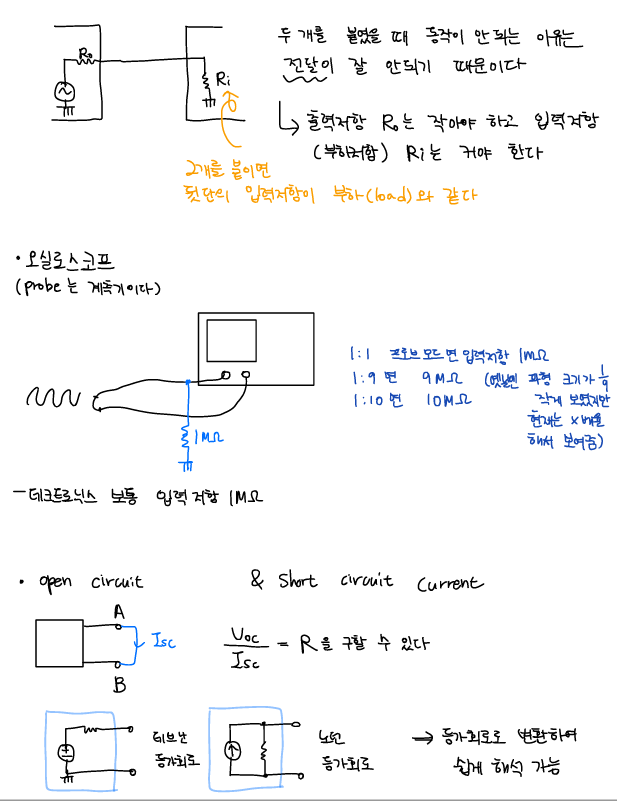 두개를 붙였을 때 동작이 안되는 이유는
전달이 잘 안되기 때문이다
Ro
Ri
↳ 출력저항 Ro는 작아야 하고 입력저항
(부하저항) Ri는 커야 한다
2개를 붙이면
뒷단의 입력저항이 부하(load)와 같다
• 오실로스코프
(probe는 계측기이다)
1:1 프로브 모드면 입력저항 1MΩ
1:9 면 9MΩ (옛날엔 파형 크기가 1/9
1:10 면 10MΩ 작게 보였지만
현재는 x배율
해서 보여줌)
1MΩ
– 테크트로닉스 보통 입력저항 1MΩ
• open circuit & short circuit current
A
Isc
B
Voc/Isc = R을 구할 수 있다
테브난
등가회로
노턴
등가회로
→ 등가회로로 변환하여
쉽게 해석 가능